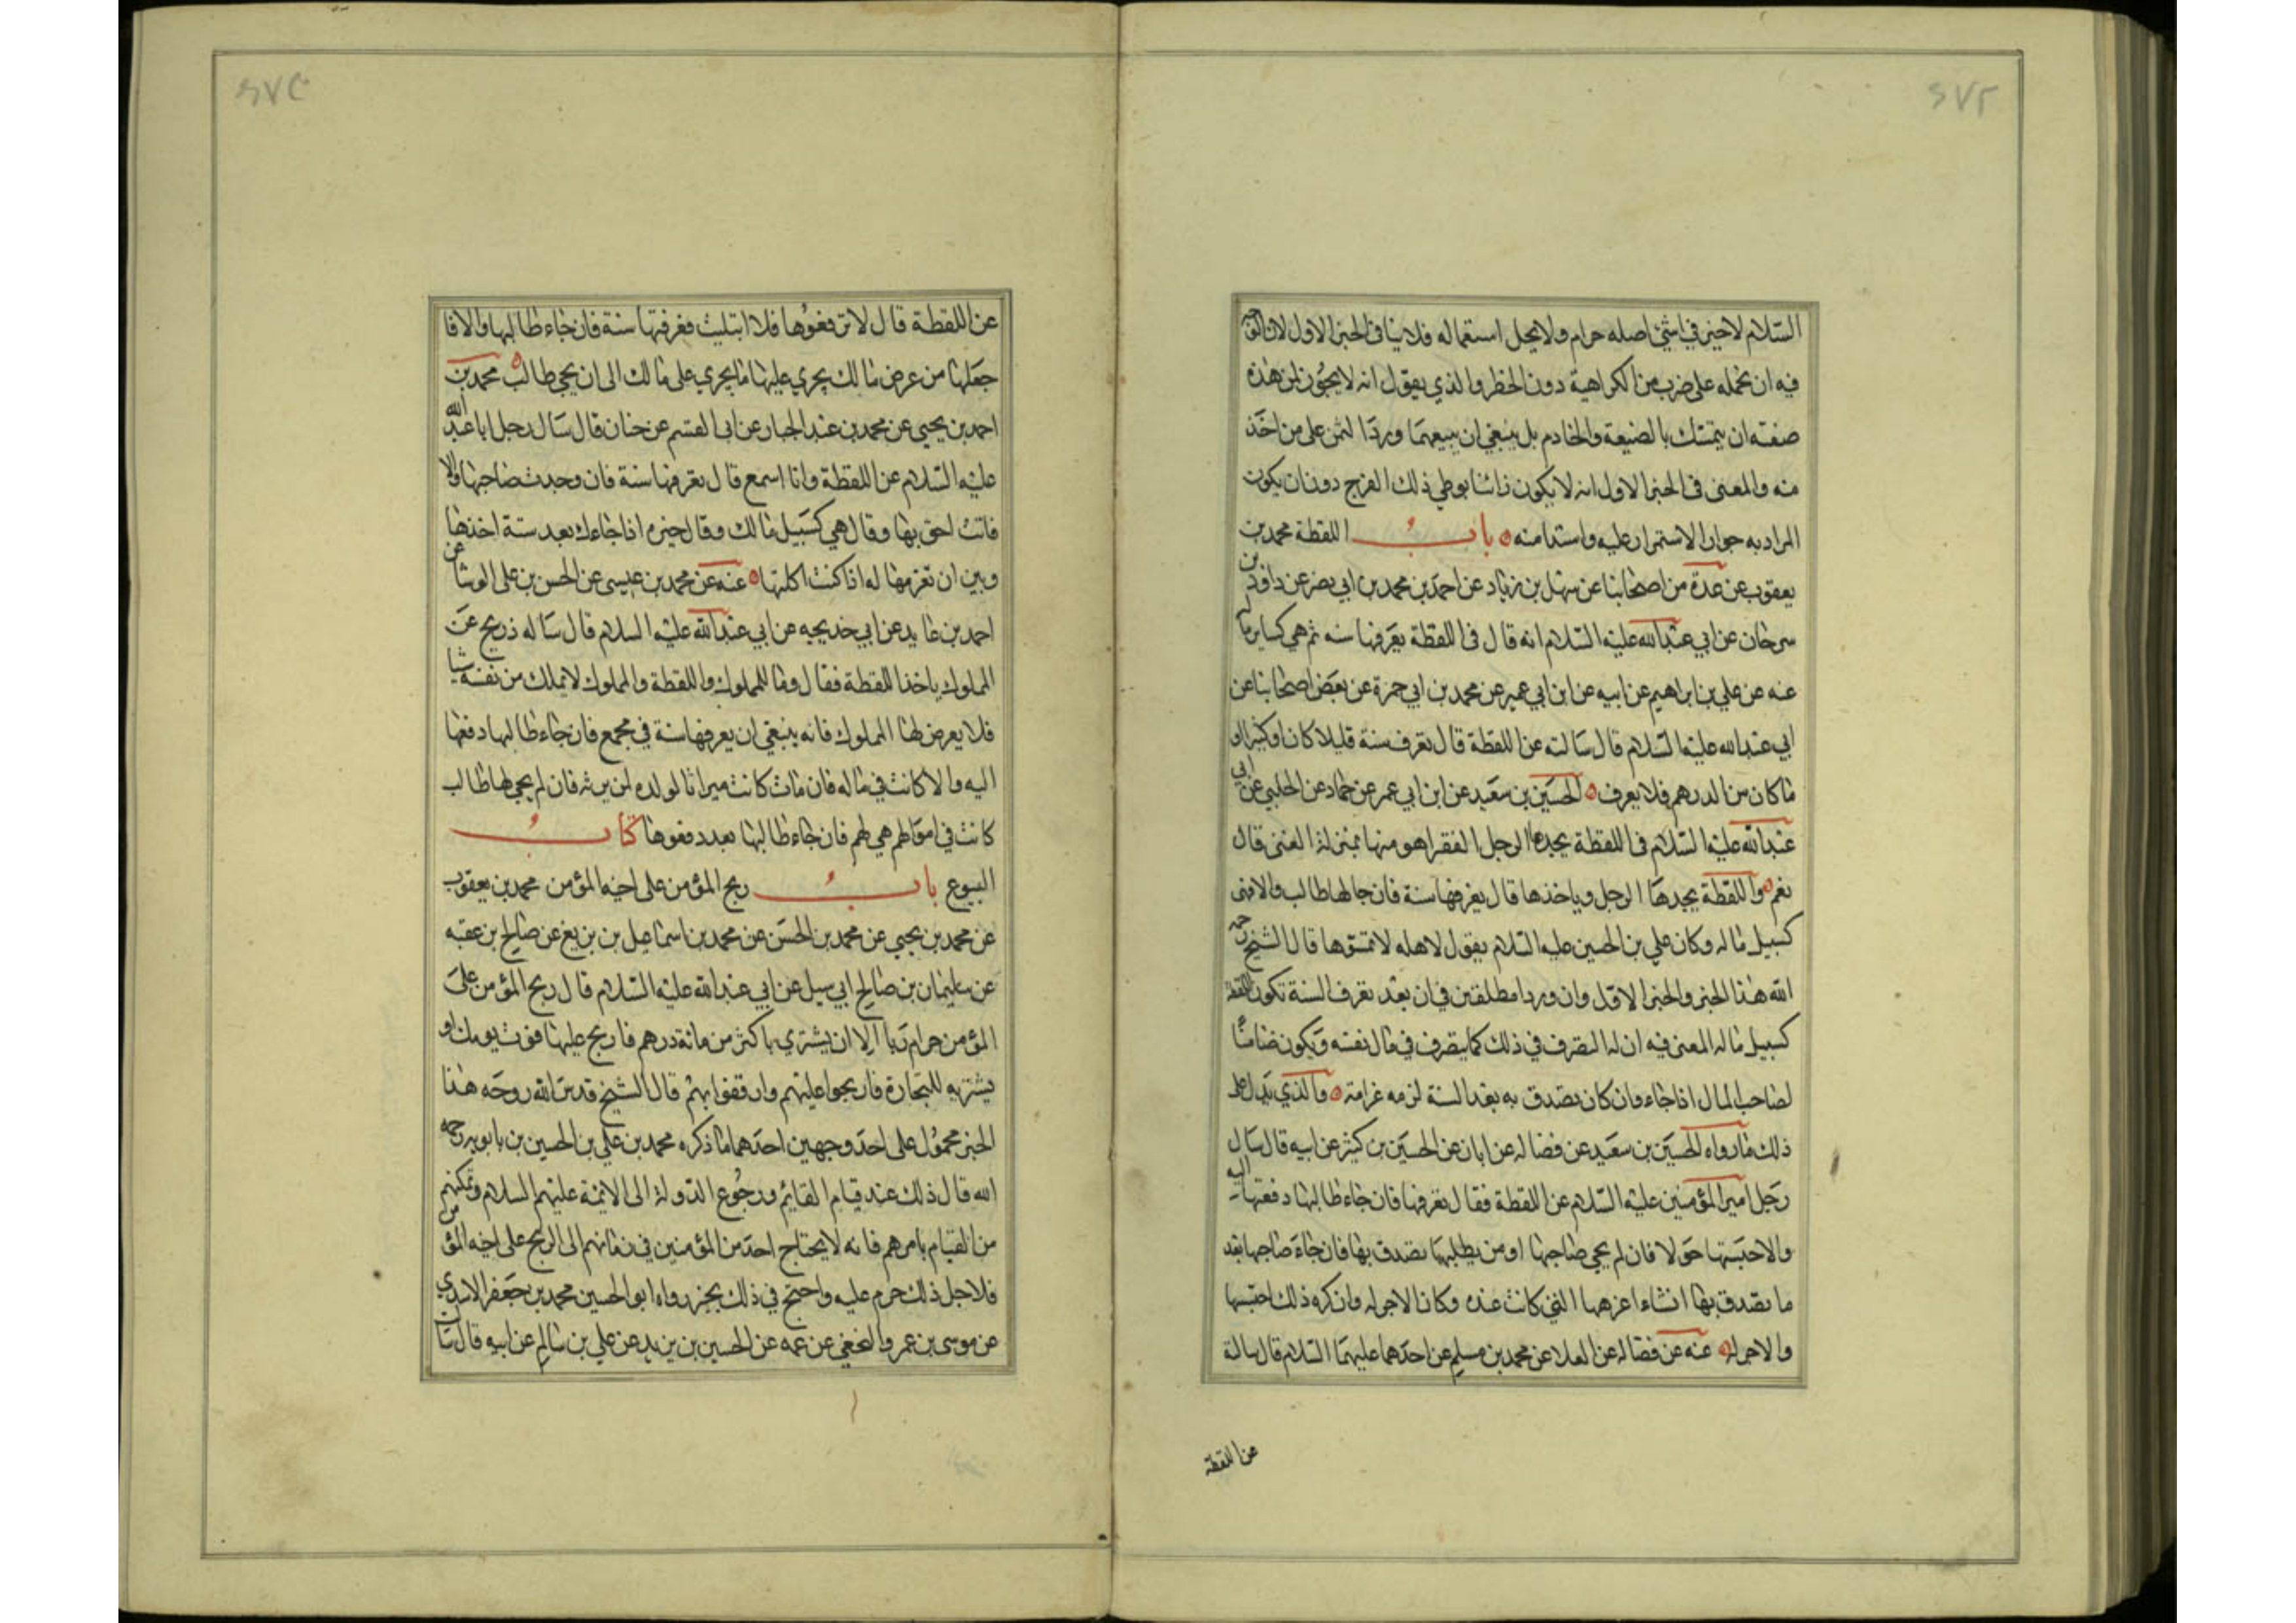 السلام لا خير في شئ اصله حرام ولا يحل استعماله فلا ينافى الخبر الاول لان الوجه
فيه ان نحمله على ضرب من الكراهية دون الحظر والذي يقول انه لا يجوز لمن هذه
صفته ان يتمسك بالضيعة والخادم بل ينبغي ان يبيعهما ورد الثمن على من اخذ
منه والمعنى في الخبر الاول انه لا يكون زانيا بوطي ذلك الفرج دون ان يكون
المراد به جواز الاستمرار عليه واستدامته باب اللقطة محمد بن
يعقوب عن عدة من اصحابنا عن سهل بن زياد عن احمد بن محمد بن ابي نصر عن داود بن
سرحان عن ابي عبدالله عليه السلام انه قال في اللقطة يعرفها سنه ثم هي كساير ماله
عنه عن علي بن ابراهيم عن ابيه عن ابن ابي عمير عن محمد بن ابي حمزة عن بعض اصحابنا عن
ابي عبدالله عليه السلام قال سالته عن اللقطة قال تعرف سنة قليلا كان او كثيرا او
ما كان من الدرهم فلا يعرف الحسين بن سعيد عن ابن ابي عمر عن حماد عن الحلبي عن ابي
عبدالله عليه السلام في اللقطة يجدها الرجل الفقر اهو منها بمنزلة الغنى قال
نعم واللقطة يجدها الرجل وياخذها قال يعرفها سنة فان جا لها طالب والا فهى
كسبيل ماله وكان علي بن الحسين عليه السلام يقول لاهله لا تمسوها قال الشيخ رحمه
الله هذا الخبر والخبر الاول وان وردا مطلقين في ان بعد تعرف السنة تكون اللقطة
كسبيل ماله المعنى فيه ان له التصرف في ذلك كما يتصرف في مال نفسه ويكون ضامنا
لصاحب المال اذا جاء وان كان تصدق به بعد السنة لزمه غرامته والذي يدل على
ذلك ما رواه الحسين بن سعيد عن فضاله عن ابان عن الحسين بن كثير عن ابيه قال سال
رجل امير المؤمنين عليه السلام عن اللقطة فقال تعرفها فان جاء طالبها دفعتها اليه
والا حبستها حولا فان لم يجى صاحبها او من يطلبها تصدق بها فان جاء صاحبها بعد
ما تصدق بها ان شاء اغرمها التي كانت عنده وكان الاجر له وان كره ذلك احتسبها
والاجر له عنه عن فضاله عن العلا عن محمد بن مسلم عن احدهما عليهما السلام قال سالته
عن اللقطة
عن اللقطة قال لا ترفعوها فلا ابتليت فعرفتها سنة فان جاء طالبها والا فا
جعلها من عرض مالك يجري عليها ما يجري على مالك الى ان يجى طالب محمد بن
احمد بن يحيى عن محمد بن عبد الجبار عن ابى القسم عن حنان قال سال رجل ابا عبدالله
عليه السلام عن اللقطة وانا اسمع قال تعرفها سنة فان وجدت صاحبها والا
فانت احق بها وقال هي كسبيل مالك وقال خيره اذا جاءك بعد سنة اخذها
وبين ان تغرمها له اذا كنت اكلتها عنه عن محمد بن عيسى عن الحسن بن على الوشا عن
احمد بن عايد عن ابي خديجه عن ابي عبدالله عليه السلام قال ساله ذريح عن
المملوك ياخذ اللقطة فقال وما للمملوك واللقطة والمملوك لا يملك من نفسه شيا
فلا يعرض لها المملوك فانه ينبغي ان يعرفها سنة في مجمع فان جاء طالبها دفعها
اليه والا كانت في ماله فان مات كانت ميراثا لولده لمن يرثه فان لم يجى لها طالب
كانت في اموالهم هي لهم فان جاء طالبها بعد دفعوها كتاب
البيوع باب ربح المؤمن على اخيه المؤمن محمد بن يعقوب
عن محمد بن يحيى عن محمد بن الحسن عن محمد بن اسماعيل بن بزيع عن صالح بن عقبه
عن سليمان بن صالح ابي سيل عن ابي عبدالله عليه السلام قال ربح المؤمن على
المؤمن حرام ربا الا ان يشترى باكثر من مائة درهم فاربح عليها قوت يومك او
يشتريه للتجارة فاربحوا عليهم وارفقوا بهم قال الشيخ قدس الله روحه هذا
الخبر محمول على احد وجهين احدهما ما ذكره محمد بن علي بن الحسين بن بابويه رحمه
الله قال ذلك عند قيام القايم ورجوع الدولة الى الائمة عليهم السلام وتمكنهم
من القيام بامرهم فانه لا يحتاج احد من المؤمنين في زمانهم الى الربح على اخيه المؤمن
فلاجل ذلك حرم عليه واحتج في ذلك بخبر رواه ابو الحسين محمد بن جعفر الاسدي
عن موسى بن عمر والنخعي عن عمه عن الحسين بن يزيد عن علي بن سالم عن ابيه قال سالت